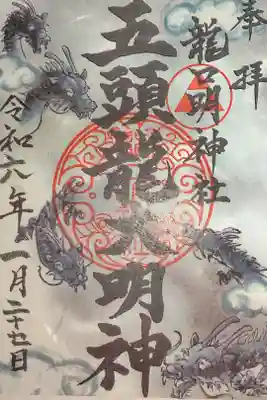 奉拝
龍口明神社
五頭龍大明神
令和六年一月二十七日